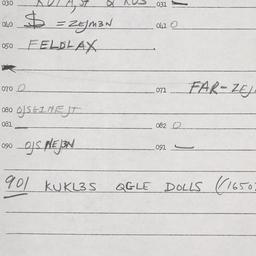 030 031
040 $ = ZEJM3N 041 0
050 FELDLAX
070 0 071 FAR-ZEJ
080 OJSTINEJT
081 082 0
090 OJS NEJ3N 091
901 KUKL3S QGLE DOLLS (1650